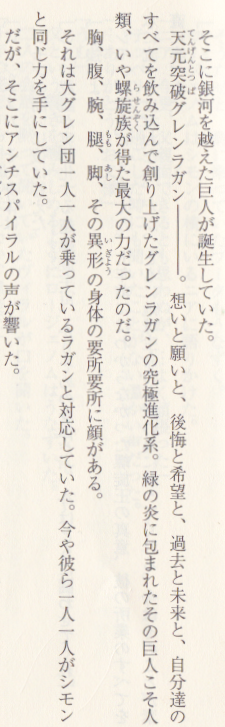 そこに銀河を越えた巨人が誕生していた。
天元突破グレンラガン――。想いと願いと、後悔と希望と、過去と未来と、自分達の
すべてを飲み込んで創り上げたグレンラガンの究極進化系。緑の炎に包まれたその巨人こそ人
類、いや螺旋族が得た最大の力だったのだ。
胸、腹、腕、腿、脚　その異形の身体の要所要所に顔がある。
それは大グレン団一人一人が乗っているラガンと対応していた。今や彼ら一人一人がシモン
と同じ力を手にしていた。
だが、そこにアンチスパイラルの声が響いた。